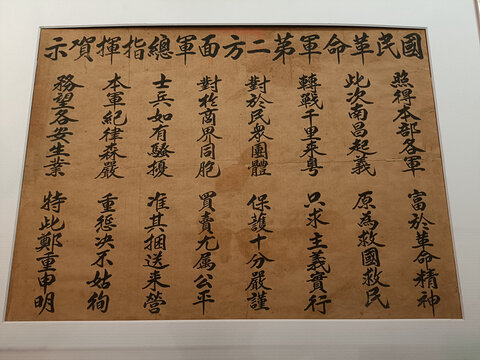 國民革命軍第二方面軍總指揮賀示
照得本部各軍 富於革命精神
此次南昌起義 原為救國救民
轉戰千里來粵 只求主義實行
對於民衆團體 保護十分嚴謹
對於商界同胞 買賣尤属公平
士兵如有騷擾 准其捆送来營
本軍紀律森嚴 重懲决不姑徇
務望各安生業 特此鄭重申明